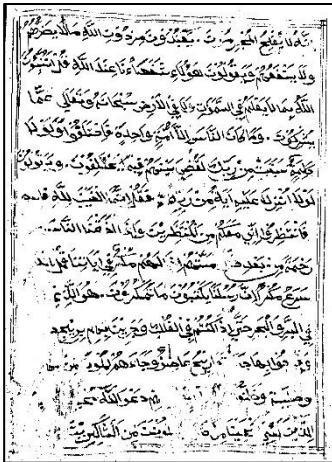 انه لا يفلح المجرمون ويعبدون من دون الله ما لا يضرهم
ولا ينفعهم ويقولون هؤلاء شفعاؤنا عند الله قل اتنبئون
الله بما لا يعلم في السموات ولا في الارض سبحانه وتعالى عما
يشركون وما كان الناس الا امة واحدة فاختلفوا ولولا
كلمة سبقت من ربك لقضي بينهم فيما فيه يختلفون ويقولون
لولا انزل عليه اية من ربه فقل انما الغيب لله
فانتظروا اني معكم من المنتظرين واذا اذقنا الناس
رحمة من بعد مستهم اذا لهم مكر في اياتنا قل الله
اسرع مكرا ان رسلنا يكتبون ما تمكرون هو الذي
في البر والبحر حتى اذا كنتم في الفلك وجرين بهم بريح
وفرحوا بها ريح عاصف وجاءهم الموج من
دعوا الله
من الشاكرين